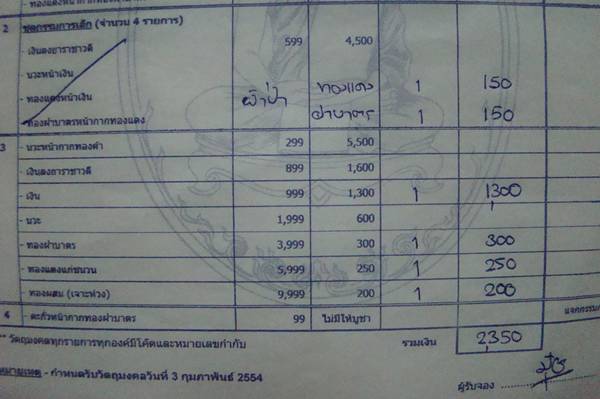 2 ชุดกรรมการเล็ก (จำนวน 4 รายการ)
- เงินตรงธาราชาวดี 599 4,500
- นวะหน้าเงิน
- ทองแดงหน้าเงิน ผ้าป่า ทองแดง 1 150
- ทองฝาบาตรหน้ากากทองแดง ฝาบาตร 1 150
3 - นวะหน้ากากทองคำ 299 5,500
899 1,600
- เงิน 999 1,300 1 1300
- นวะ 1,999 600
- ทองฝาบาตร 3,999 300 1 300
- ทองแดงแก่ชนวน 5,999 250 1 250
- ทองผสม (เจาะห่วง) 9,999 200 1 200
4 - ตะกั่วหน้ากากทองฝาบาตร 99 ไม่มีให้บูชา
** วัตถุมงคลทุกรายการทุกองค์มีโค๊ตและหมายเลขกำกับ รวมเงิน 2,350
หมายเหตุ - กำหนดรับวัตถุมงคลวันที่ 3 กุมภาพันธ์ 2554
ผู้รับจอง